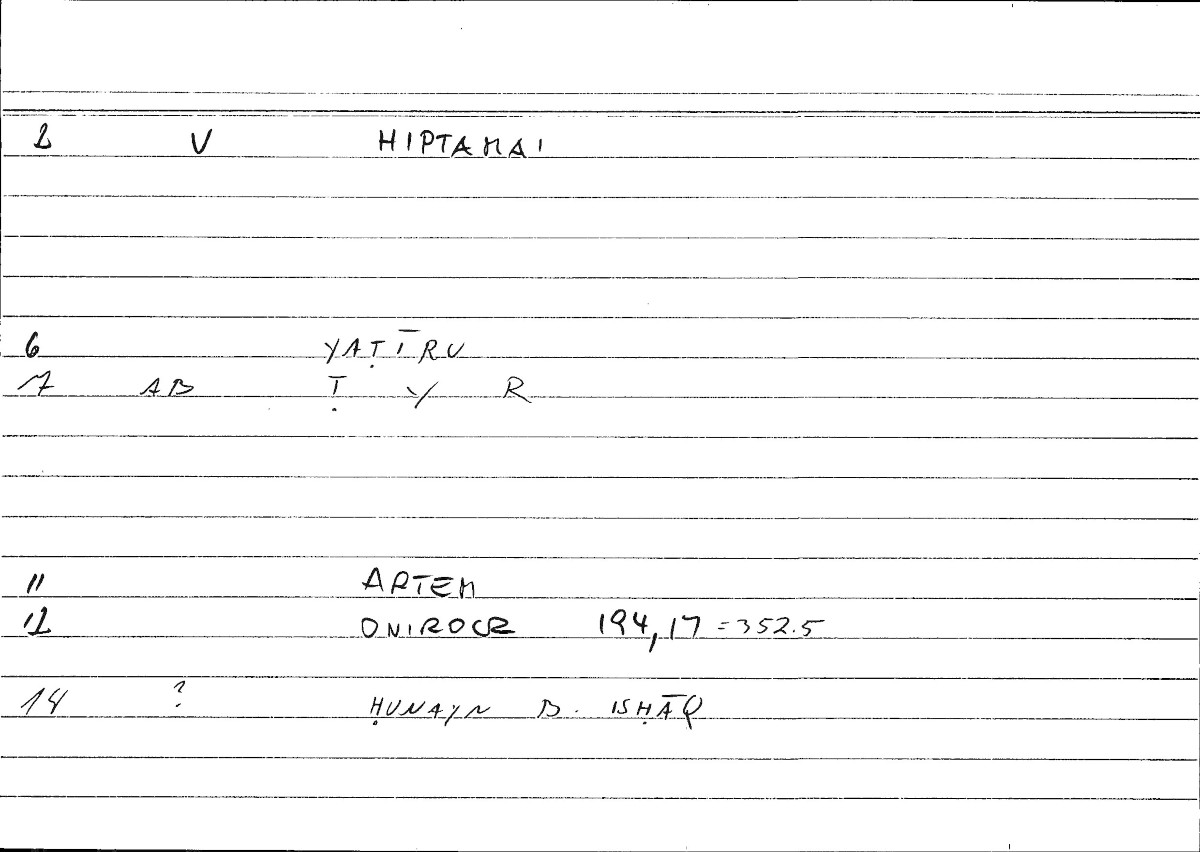 2 V HIPTAMAI
6 YAṬĪRU
7 AB Ṭ Y R
11 ARTEM
12 ONIROCR 194,17 = 352.5
14 ? ḤUNAYN B. ISḤĀQ